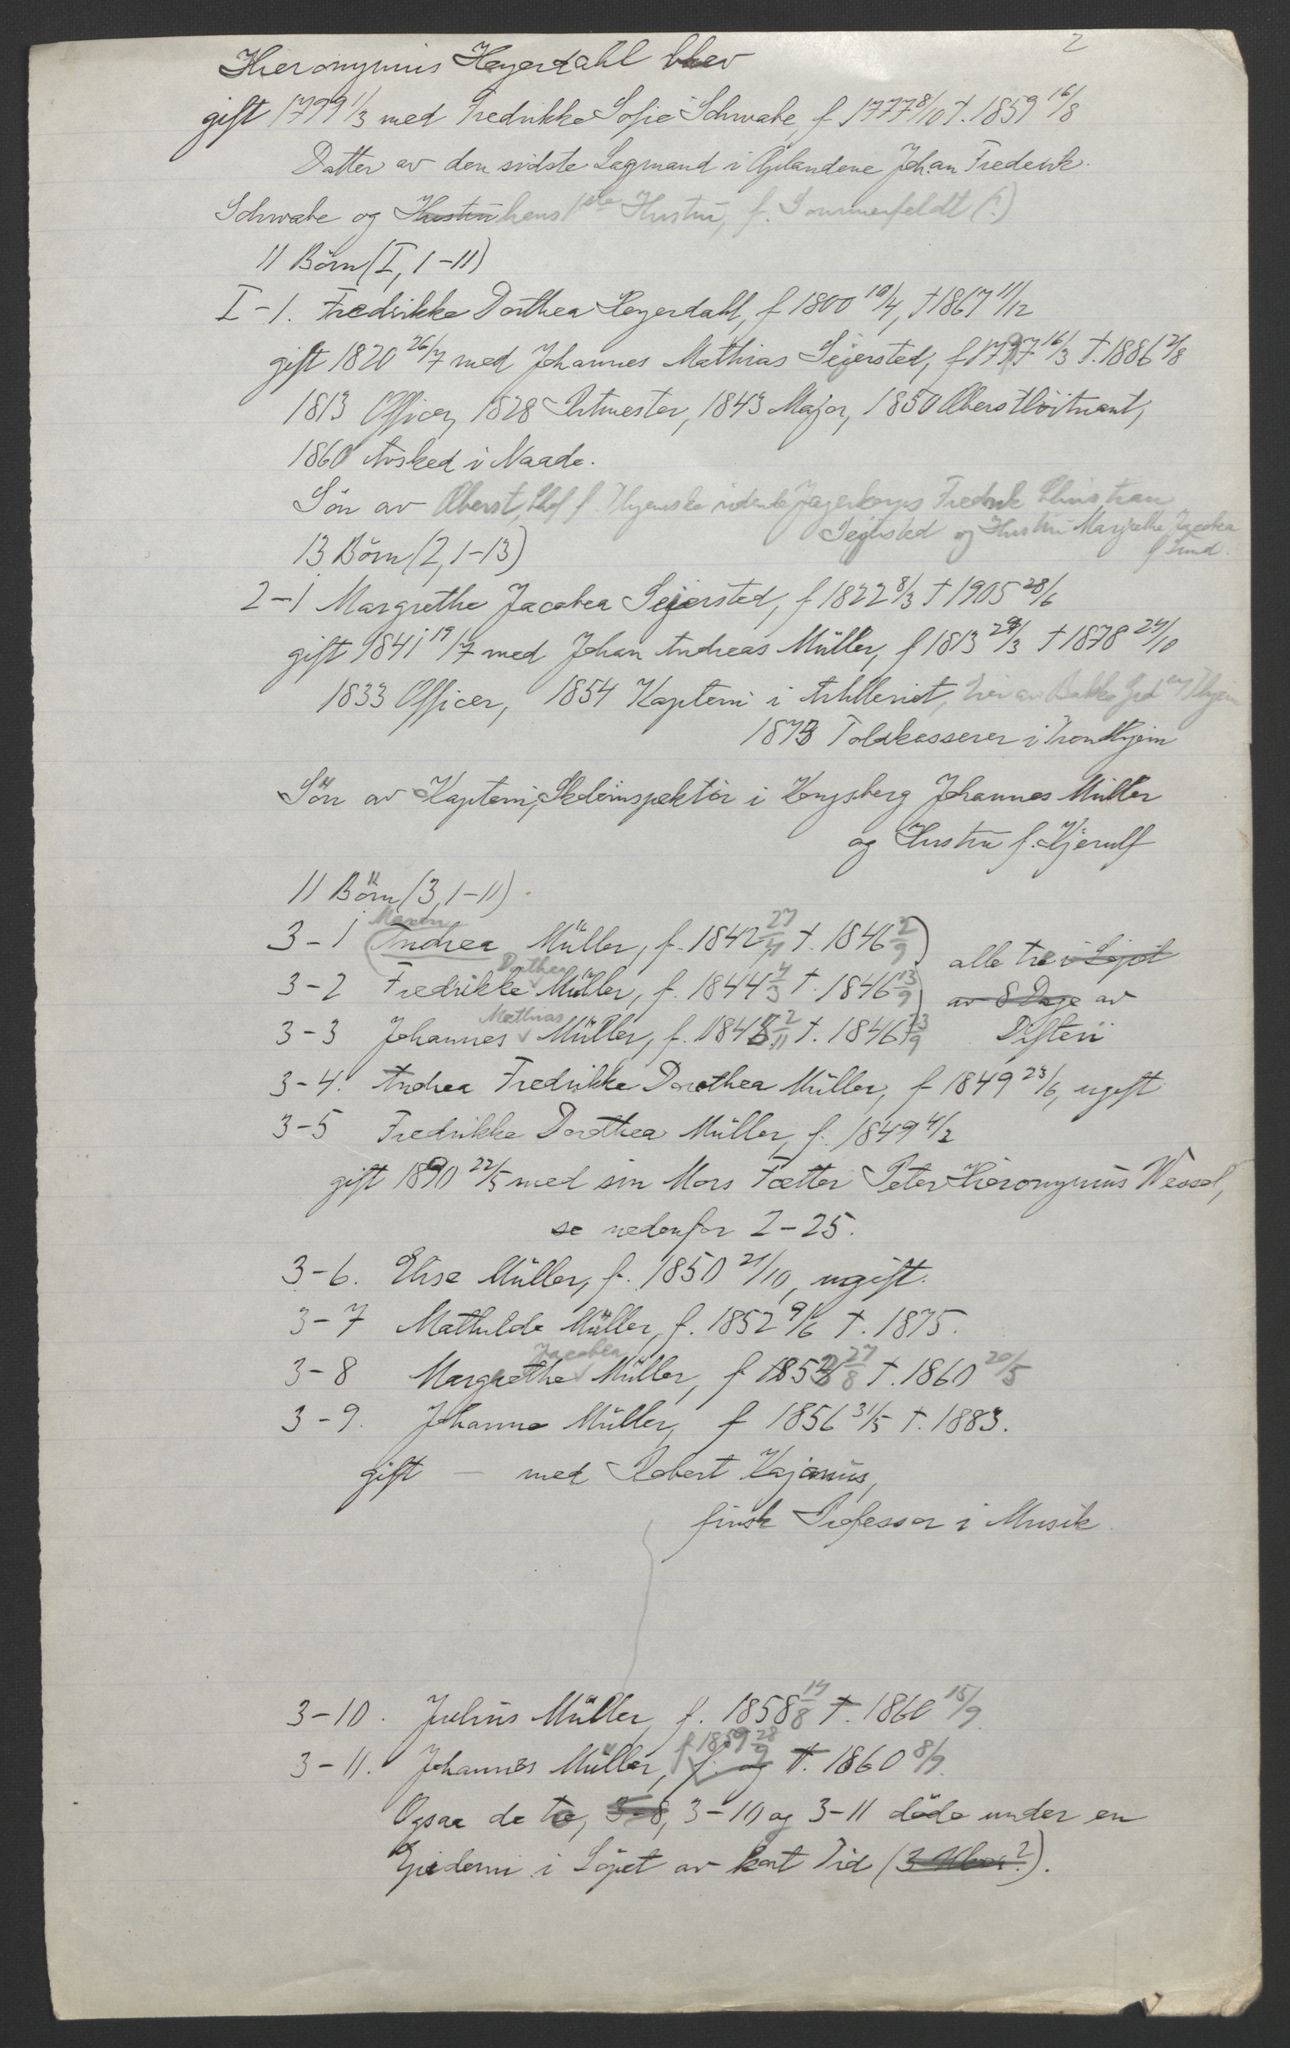 2
Hieronymus Heyerdahl blev
gift 1799 1/3 med Fredrikke Sofie Schwabe, f 1777 8/10 †. 1859 16/8
Datter av den sidste Lagmand i Oplandene Johan Frederik
Schwabe og Hustru hans 1ste Hustru, f. Sommerfeldt (?)
11 Börn (I, 1-11)
I-1. Fredrikke Dorthea Heyerdahl, f 1800 10/4, †1867 11/12
gift 1820 26/7 med Johannes Mathias Sejersted, f 1797 16/3 †. 1886 21/8
1813 Officer, 1828 Ritmester, 1843 Major, 1850 Oberstlöitnant,
1860 Avsked i Naade.
Sön av Oberst, Chef f. Thjemske ridende Jægerkorps Fredrik Christian
Sejersted og Hustru Margrethe Jacobea
f Lund.
13 Börn (2, 1-13)
2-1 Margrethe Jacobea Sejersted, f 1822 8/3 † 1905 28/6
gift 1841 19/7 med Johan Andreas Müller, f 1813 29/3 † 1878 24/10
1833 Officer, 1854 Kaptein i Artilleriet, Eier av Bakke Grd. Thjem
1873 Toldkasserer i Trondhjem
Sön av Kaptein, Skoleinspektör i Kongsberg Johannes Müller
og Hustru f. Kjerulf
11 Börn (3, 1-11)
3-1 (Maren Andrea Müller, f. 1842 27/11 †. 1846 2/9)
3-2 Fredrikke Dorthea Müller, f. 1844 4/3 †. 1846 13/9) alle tre i Löpet
3-3 Johannes Mathias Müller, f. 1845 2/11 †. 1846 13/9 av 8 Dage av
Difteri
3-4. Andrea Fredrikke Dorothea Müller, f 1849 23/6, ugift
3-5 Fredrikke Dorthea Müller, f. 1849 4/2
gift 1890 22/5 med sin Mors Fætter Peter Hieronymus Wessel,
se nedenfor 2-25.
3-6. Elise Müller, f. 1850 21/10, ugift.
3-7 Mathilde Müller, f. 1852 9/6 †. 1875.
3-8 Margrethe Jacobea Müller, f 1853 27/8 †. 1860 20/5
3-9. Johanne Müller, f 1856 31/5 †. 1883.
gift — med Robert Kajanus,
finsk Professor i Musik
3-10. Julius Müller, f. 1858 14/8 †. 1860 15/9
3-11. Johannes Müller, f 1859 28/9 f. og †. 1860 8/9.
Ogsaa de to, 3-8, 3-10 og 3-11 döde under en
Epidemi i Löpet av kort Tid (3 Uker?).